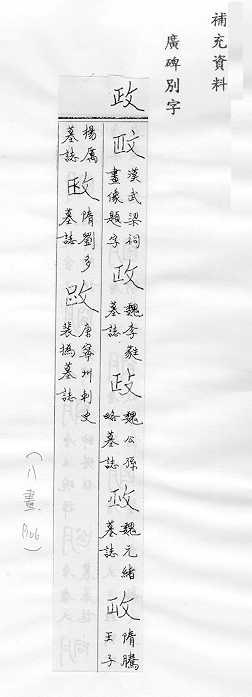 補充資料
廣碑別字
政
政漢武梁祠畫像題字政魏李蕤墓誌政魏公孫略墓誌政魏元緒墓誌政隋騰王子
楊厲墓誌政隋劉多墓誌政唐寧州刺史裴撝墓誌
(八畫 B06)